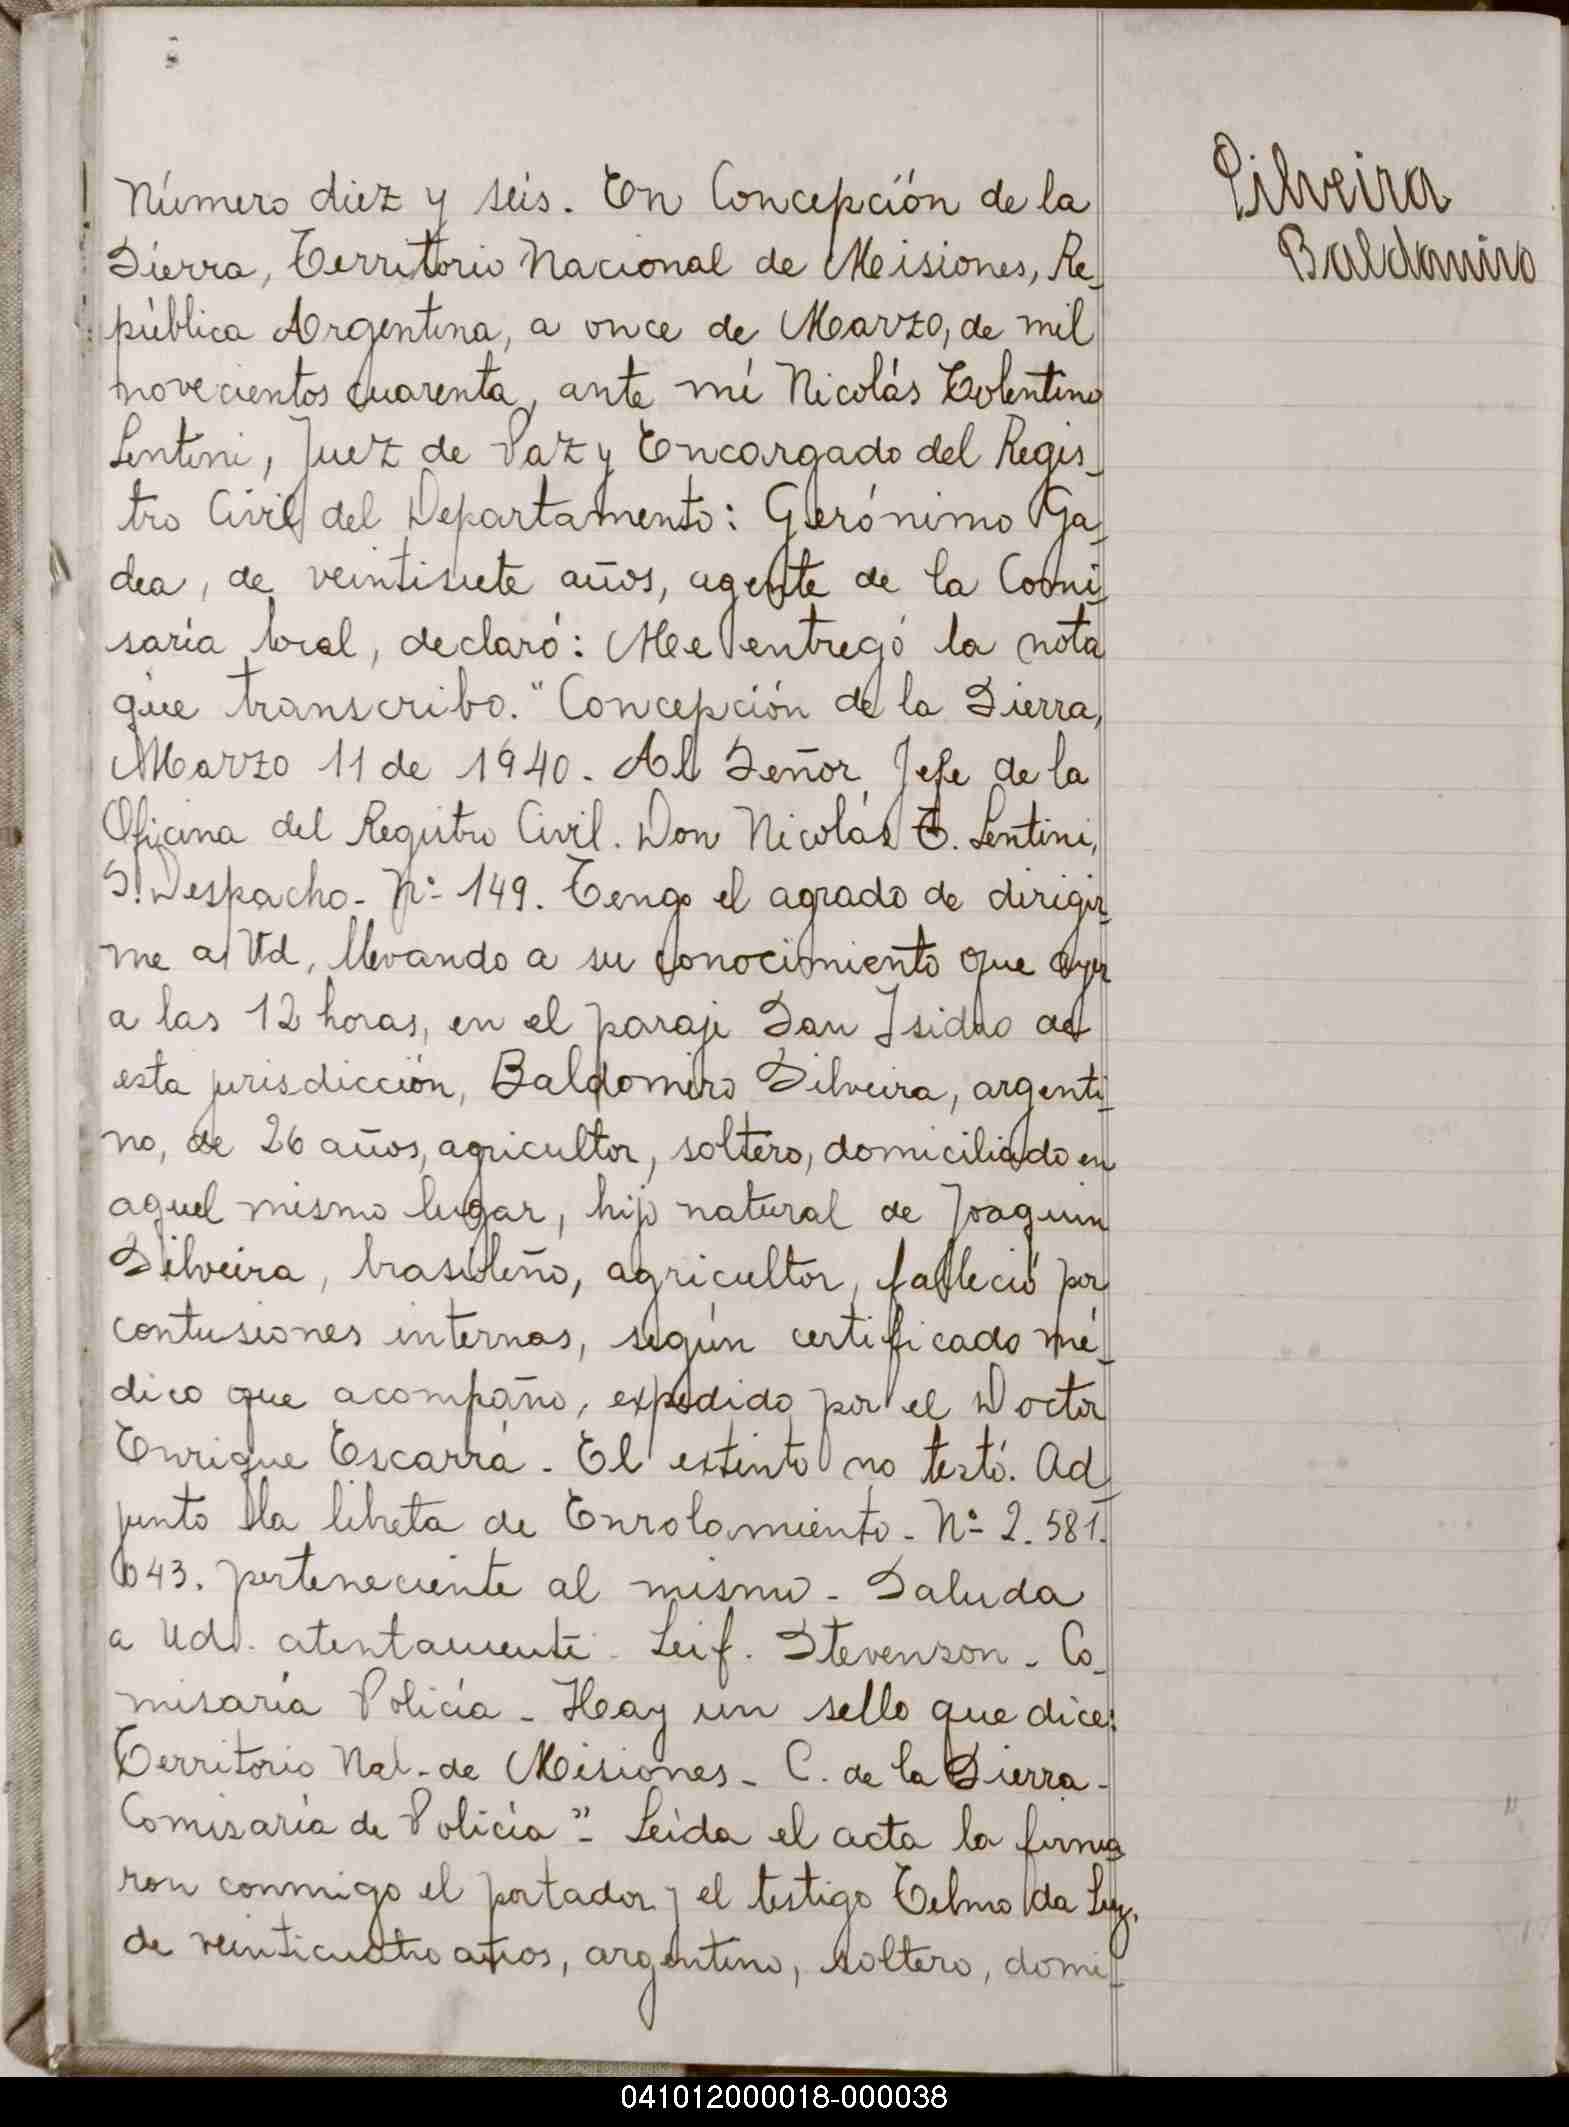 Silveira
Baldomiro
Número diez y seis. En Concepción de la
Sierra, Territorio Nacional de Misiones, Re-
pública Argentina, a once de Marzo, de mil
novecientos cuarenta, ante mí Nicolás Tolentino
Lentini, Juez de Paz y Encargado del Regis-
tro Civil del Departamento: Gerónimo Ga-
dea, de veintisiete años, agente de la Comi-
saría local, declaró: Me entregó la nota
que transcribo. "Concepción de la Sierra,
Marzo 11 de 1940. Al Señor Jefe de la
Oficina del Registro Civil. Don Nicolás T. Lentini,
S/Despacho- Nº 149. Tengo el agrado de dirigir-
me a Vd, llevando a su conocimiento que ayer
a las 12 horas, en el paraje San Isidro de
esta jurisdicción, Baldomiro Silveira, argenti-
no, de 26 años, agricultor, soltero, domiciliado en
aquel mismo lugar, hijo natural de Joaquin
Silveira, brasileño, agricultor, falleció por
contusiones internas, según certificado mé-
dico que acompaño, expedido por el Doctor
Enrique Escarrá. El extinto no testó. Ad-
junto la libreta de Enrolamiento- Nº 2.581.
043. perteneciente al mismo- Saluda
a Ud. atentamente. Leif. Stevenson- Co-
misaría Policía- Hay un sello que dice:
Territorio Nal- de Misiones- C. de la Sierra-
Comisaría de Policía"- Leída el acta la firma-
ron conmigo el portador y el testigo Telmo da Luz,
de veinticuatro años, argentino, soltero, domi-
041012000018-000038